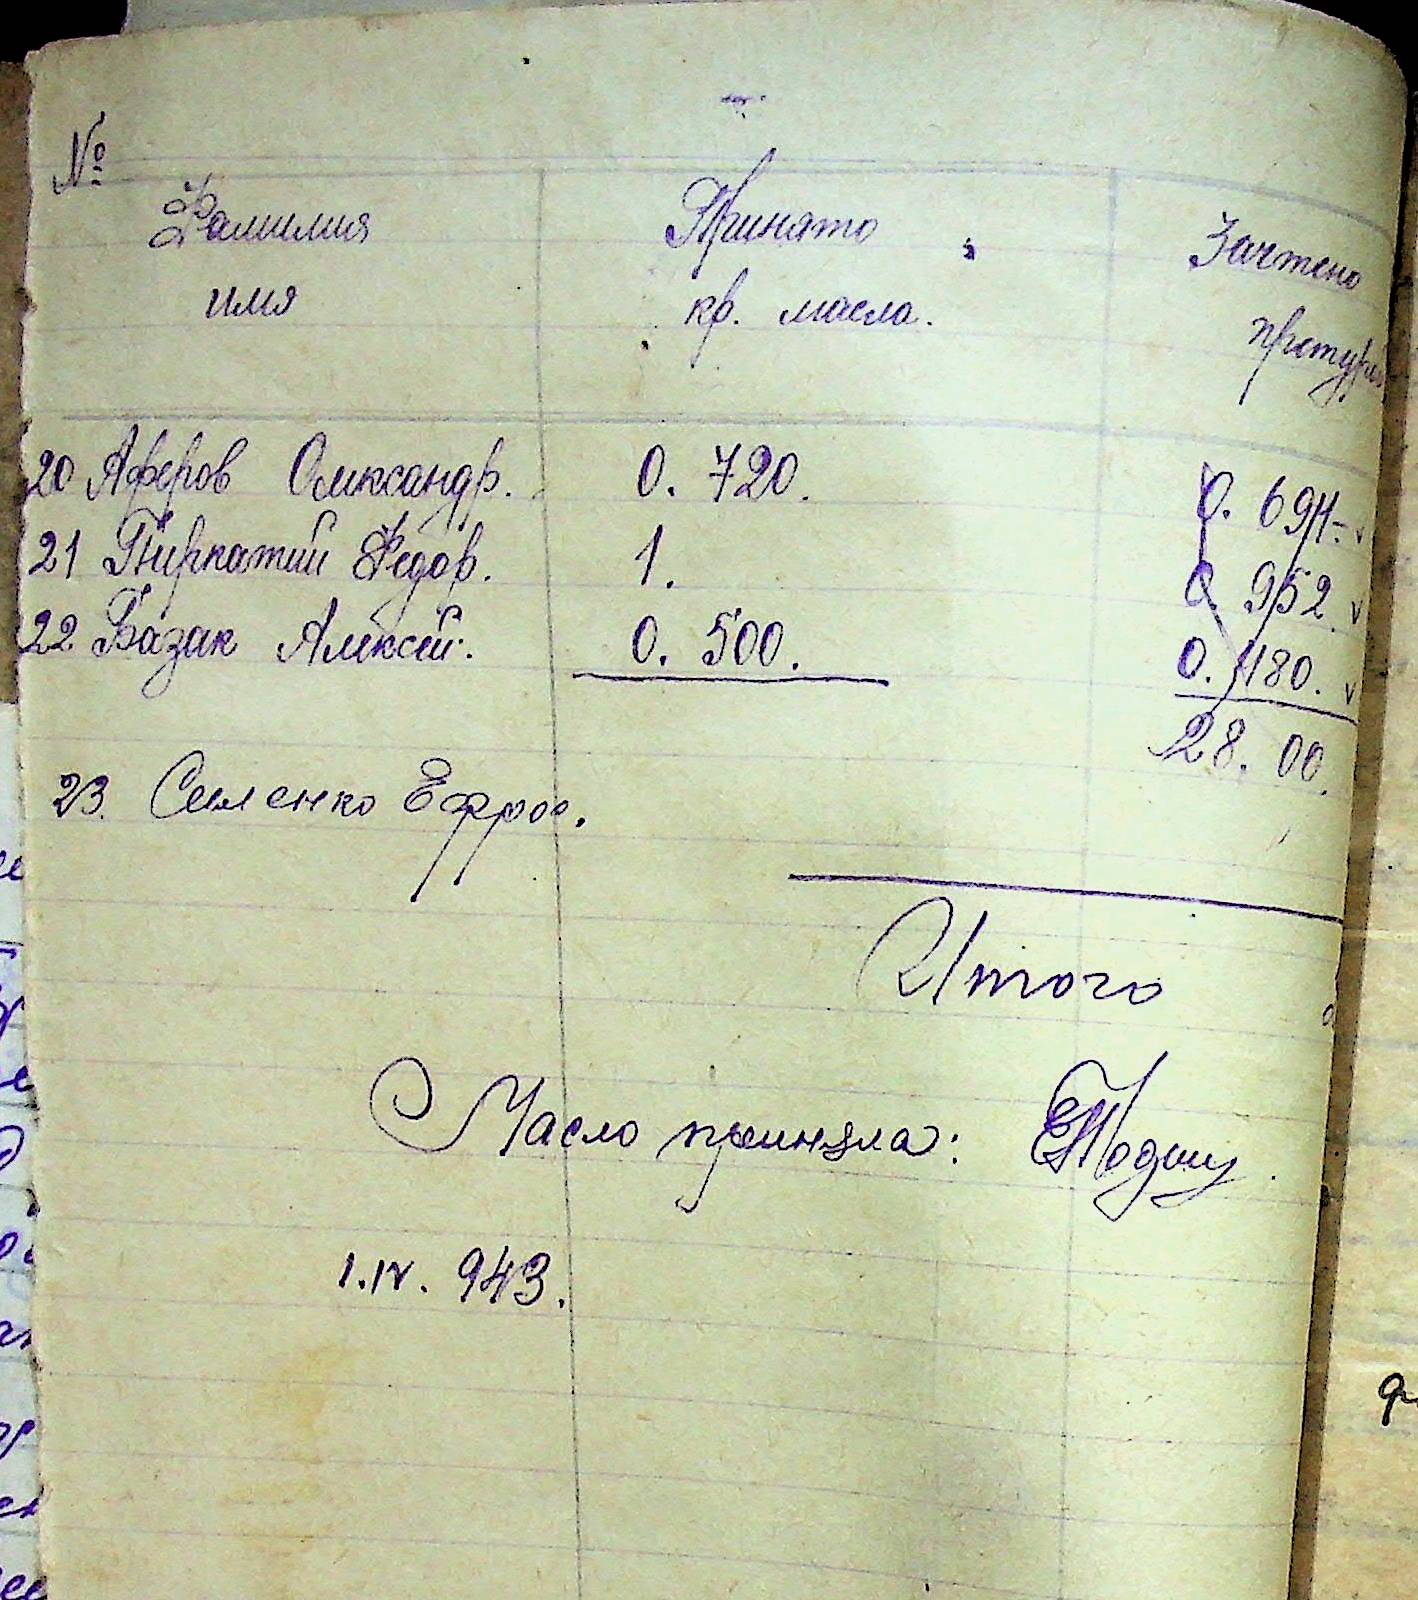 №
Фамилия Принято Зачтено
имя кр. масла.
20 Аферов Олександр. 0. 720. 0. 691-
21 Пиркатий Федор. 1. 0. 952.
22 Базак Алексей. 0. 500. 0. 480.
28. 00.
23. Силенко Ефрос.
Итого
Масло приняла:
1.IV. 943.